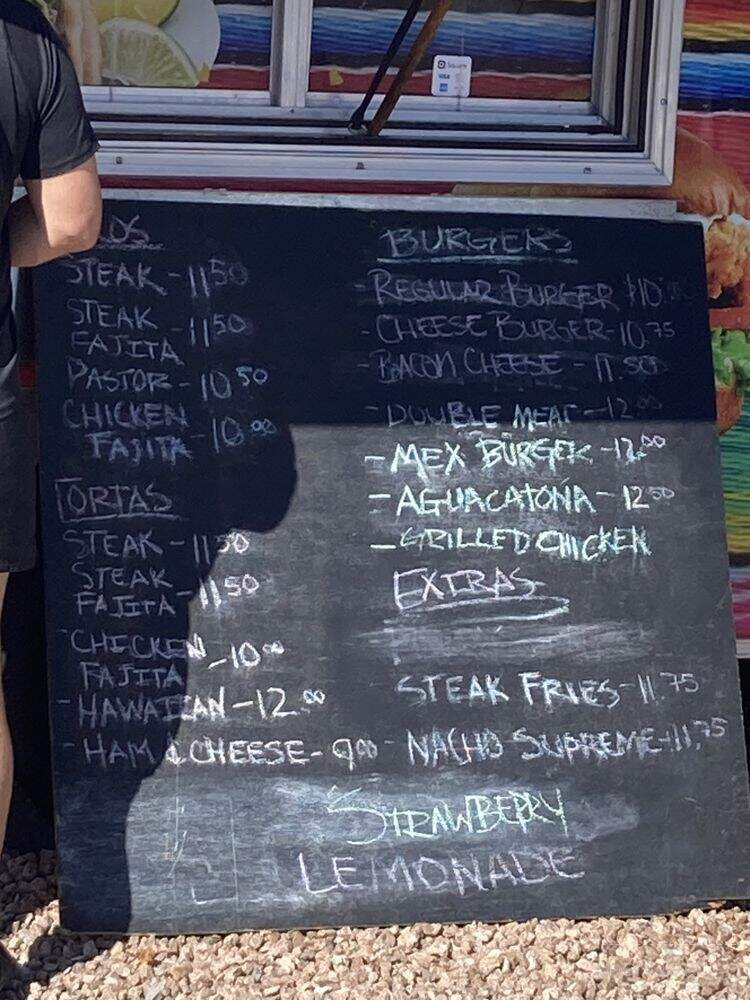 OS
STEAK - 11 50
STEAK
FAJITA - 11 50
PASTOR - 10 50
CHICKEN
FAJITA - 10 00
TORTAS
STEAK - 11 50
STEAK
FAJITA - 11 50
CHICKEN
FAJITA - 10 00
- HAWAIIAN - 12 00
- HAM & CHEESE - 9 00
BURGERS
- REGULAR BURGER $10
- CHEESE BURGER - 10.75
- BACON CHEESE - 11.50
- DOUBLE MEAT - 12.00
- MEX BURGER - 12.00
- AGUACATONA - 12 50
- GRILLED CHICKEN
EXTRAS
STEAK FRIES - 11.75
- NACHO SUPREME - 11.75
STRAWBERRY
LEMONADE
Square
VISA